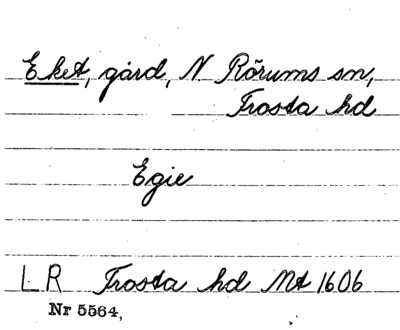 Eket, gård, N. Rörums sn,
Frosta hd
Egie
LR Frosta hd Mt 1606
Nr 5564,